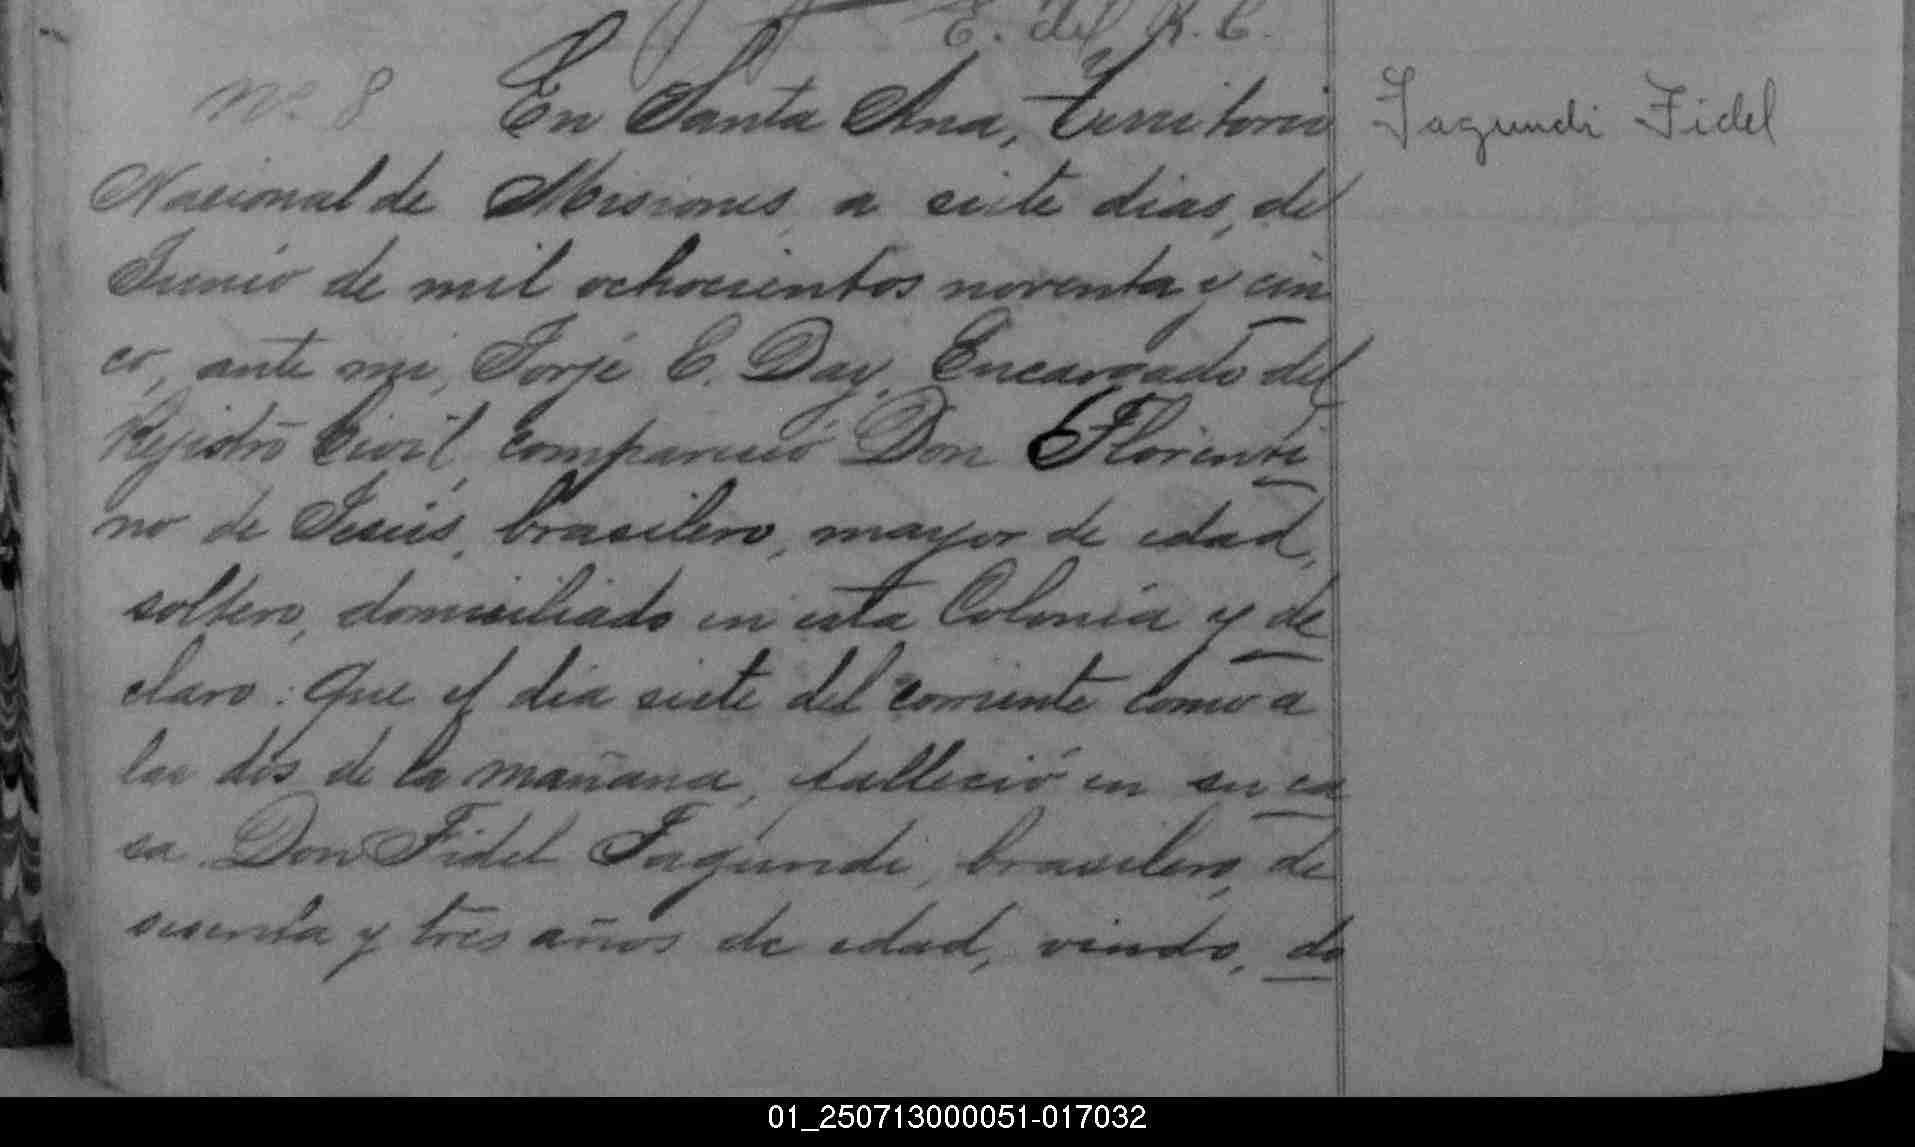 E. del R. C.
Nº 8
En Santa Ana, Territorio
Nacional de Misiones, a siete dias, de
Junio de mil ochocientos noventa y cin
co, ante mi, Jorje E. Day, Encargado del
Rejistro Civil, compareció Don Florenti
no de Jesús, brasilero, mayor de edad,
soltero, domiciliado en esta Colonia y de
claro: Que el dia siete del corriente como a
las dos de la mañana, falleció en su ca
sa Don Fidel Fagundi, brasilero, de
sesenta y tres años de edad, viudo, do
Fagundi Fidel
01_250713000051-017032